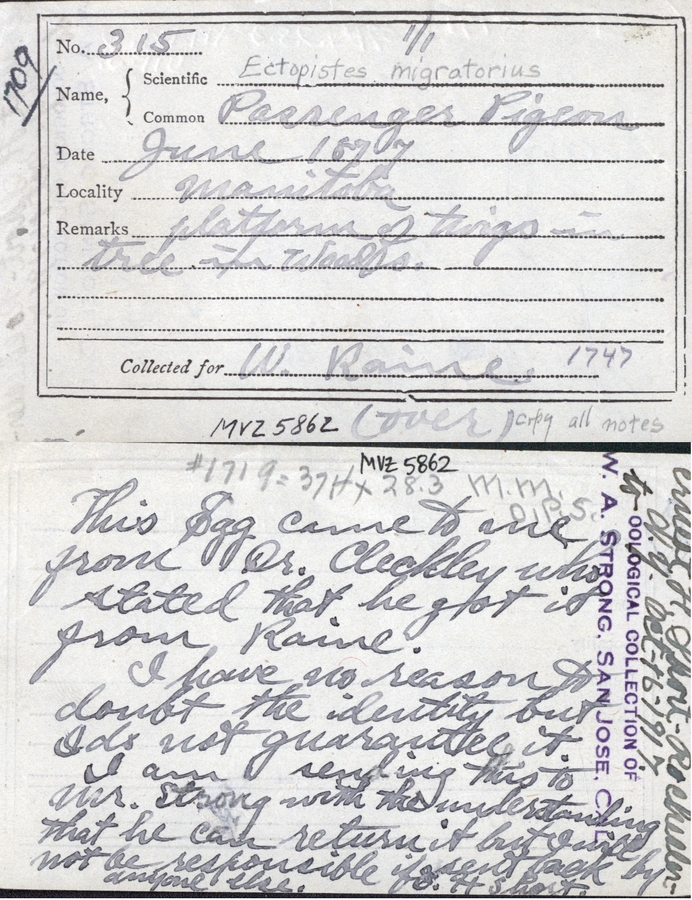 1709
No. 315 1/1
Name, { Scientific Ectopistes migratorius
Common Passenger Pigeon
Date June 1877
Locality Manitoba
Remarks platform of twigs in
tree in woods.
Collected for W. Raine. 1747
MVZ 5862 (over) copy all notes
MVZ 5862
#1719 = 37.4 x 28.3 M.M.
This Egg came to me
from Dr. Cleckley who
stated that he got it
from Raine.
I have no reason to
doubt the identity but
I do not guarantee it.
I am sending this to
Mr. Strong with the understanding
that he can return it but I will
not be responsible if sent back by
anyone else. E. H. Short.
OOLOGICAL COLLECTION OF
W. A. STRONG, SAN JOSE, CAL.
Ernest H. Short - Rochester
to